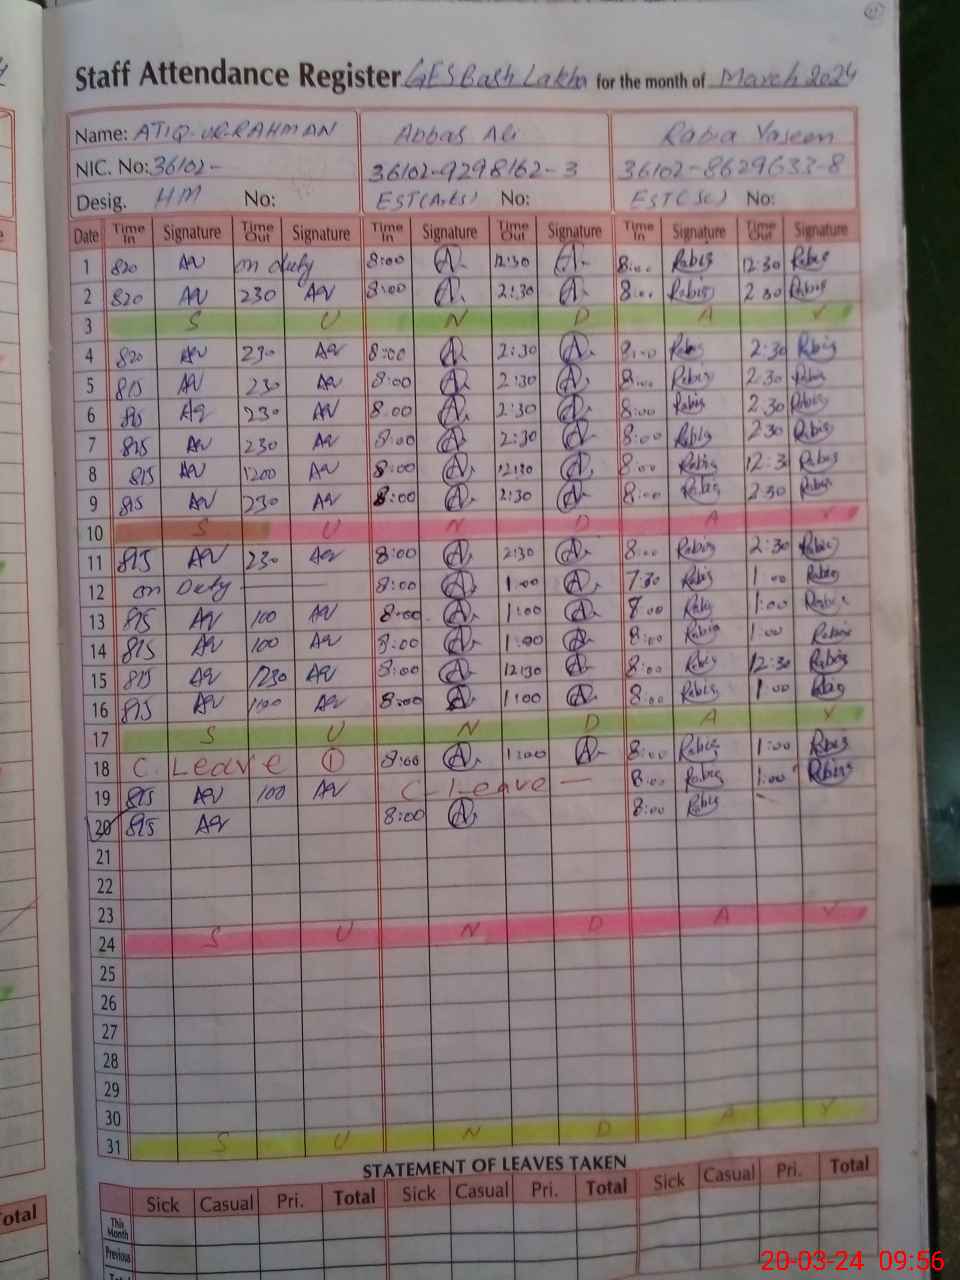 Staff Attendance Register GES Bash Lakha for the month of March 2024
Name: ATIQ-UR-RAHMAN Abbas Ali Rabia Yaseen
NIC. No: 36102- 36102-9298162-3 36102-8629633-8
Desig. HM No: EST(Arts) No: EST(Sc) No:
Date Time In Signature Time Out Signature Time In Signature Time Out Signature Time In Signature Time Out Signature
1 820 on duty 8:00 A 12:30 A 8:00 Rabia 12:30 Rabia
2 820 230 8:00 A 2:30 A 8:00 Rabia 2:30 Rabia
3 S U N D A Y
4 820 230 8:00 A 2:30 A 8:00 Rabia 2:30 Rabia
5 815 230 8:00 A 2:30 A 8:00 Rabia 2:30 Rabia
6 815 230 8:00 A 2:30 A 8:00 Rabia 2:30 Rabia
7 815 230 8:00 A 2:30 A 8:00 Rabia 2:30 Rabia
8 815 1200 8:00 A A 8:00 Rabia 12:30 Rabia
9 815 230 8:00 A 2:30 A 8:00 Rabia 2:30 Rabia
10 S U N D A Y
11 815 230 8:00 A 2:30 A 8:00 Rabia 2:30 Rabia
12 on Duty 8:00 A 1:00 A 7:30 Rabia 1:00 Rabia
13 815 100 8:00 A 1:00 A 8:00 Rabia 1:00 Rabia
14 815 100 8:00 A 1:00 A 8:00 Rabia 1:00 Rabia
15 815 1230 8:00 A 12:30 A 8:00 Rabia 12:30 Rabia
16 815 100 8:00 A 1:00 A 8:00 Rabia 1:00 Rabia
17 S U N D A Y
18 C. Leave 1 8:00 A 1:00 A 8:00 Rabia 1:00 Rabia
19 815 100 C-Leave — 8:00 Rabia 1:00 Rabia
20 815 8:00 A 8:00 Rabia
21
22
23
24 S U N D A Y
25
26
27
28
29
30
31 S U N D A Y
STATEMENT OF LEAVES TAKEN
Sick Casual Pri. Total Sick Casual Pri. Total Sick Casual Pri. Total
This Month
Previous
otal
20-03-24 09:56